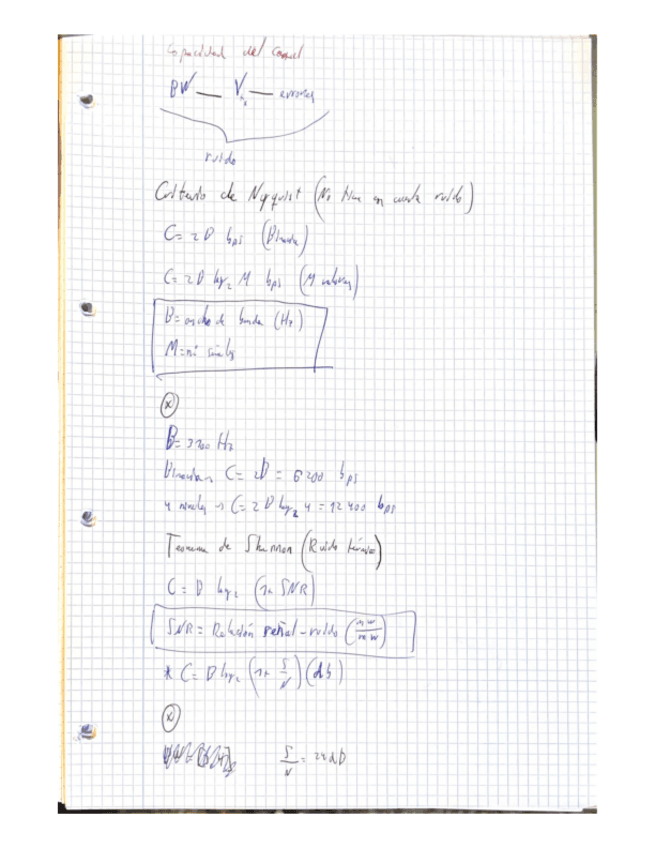 Capacidad del canal
BW — Vtx — errores
ruido
Criterio de Nyquist (No tiene en cuenta ruido)
C = 2B bps (Binaria)
C = 2B log₂ M bps (M valores)
B = ancho de banda (Hz)
M = nº señales
(x)
B = 3100 Hz
Binaria → C = 2B = 6200 bps
4 niveles → C = 2B log₂ 4 = 12400 bps
Teorema de Shannon (Ruido térmico)
C = B log₂ (1 + SNR)
SNR = Relación señal-ruido (mw/mw)
* C = B log₂ (1 + S/N) (db)
(x)
S/N = 24 dB